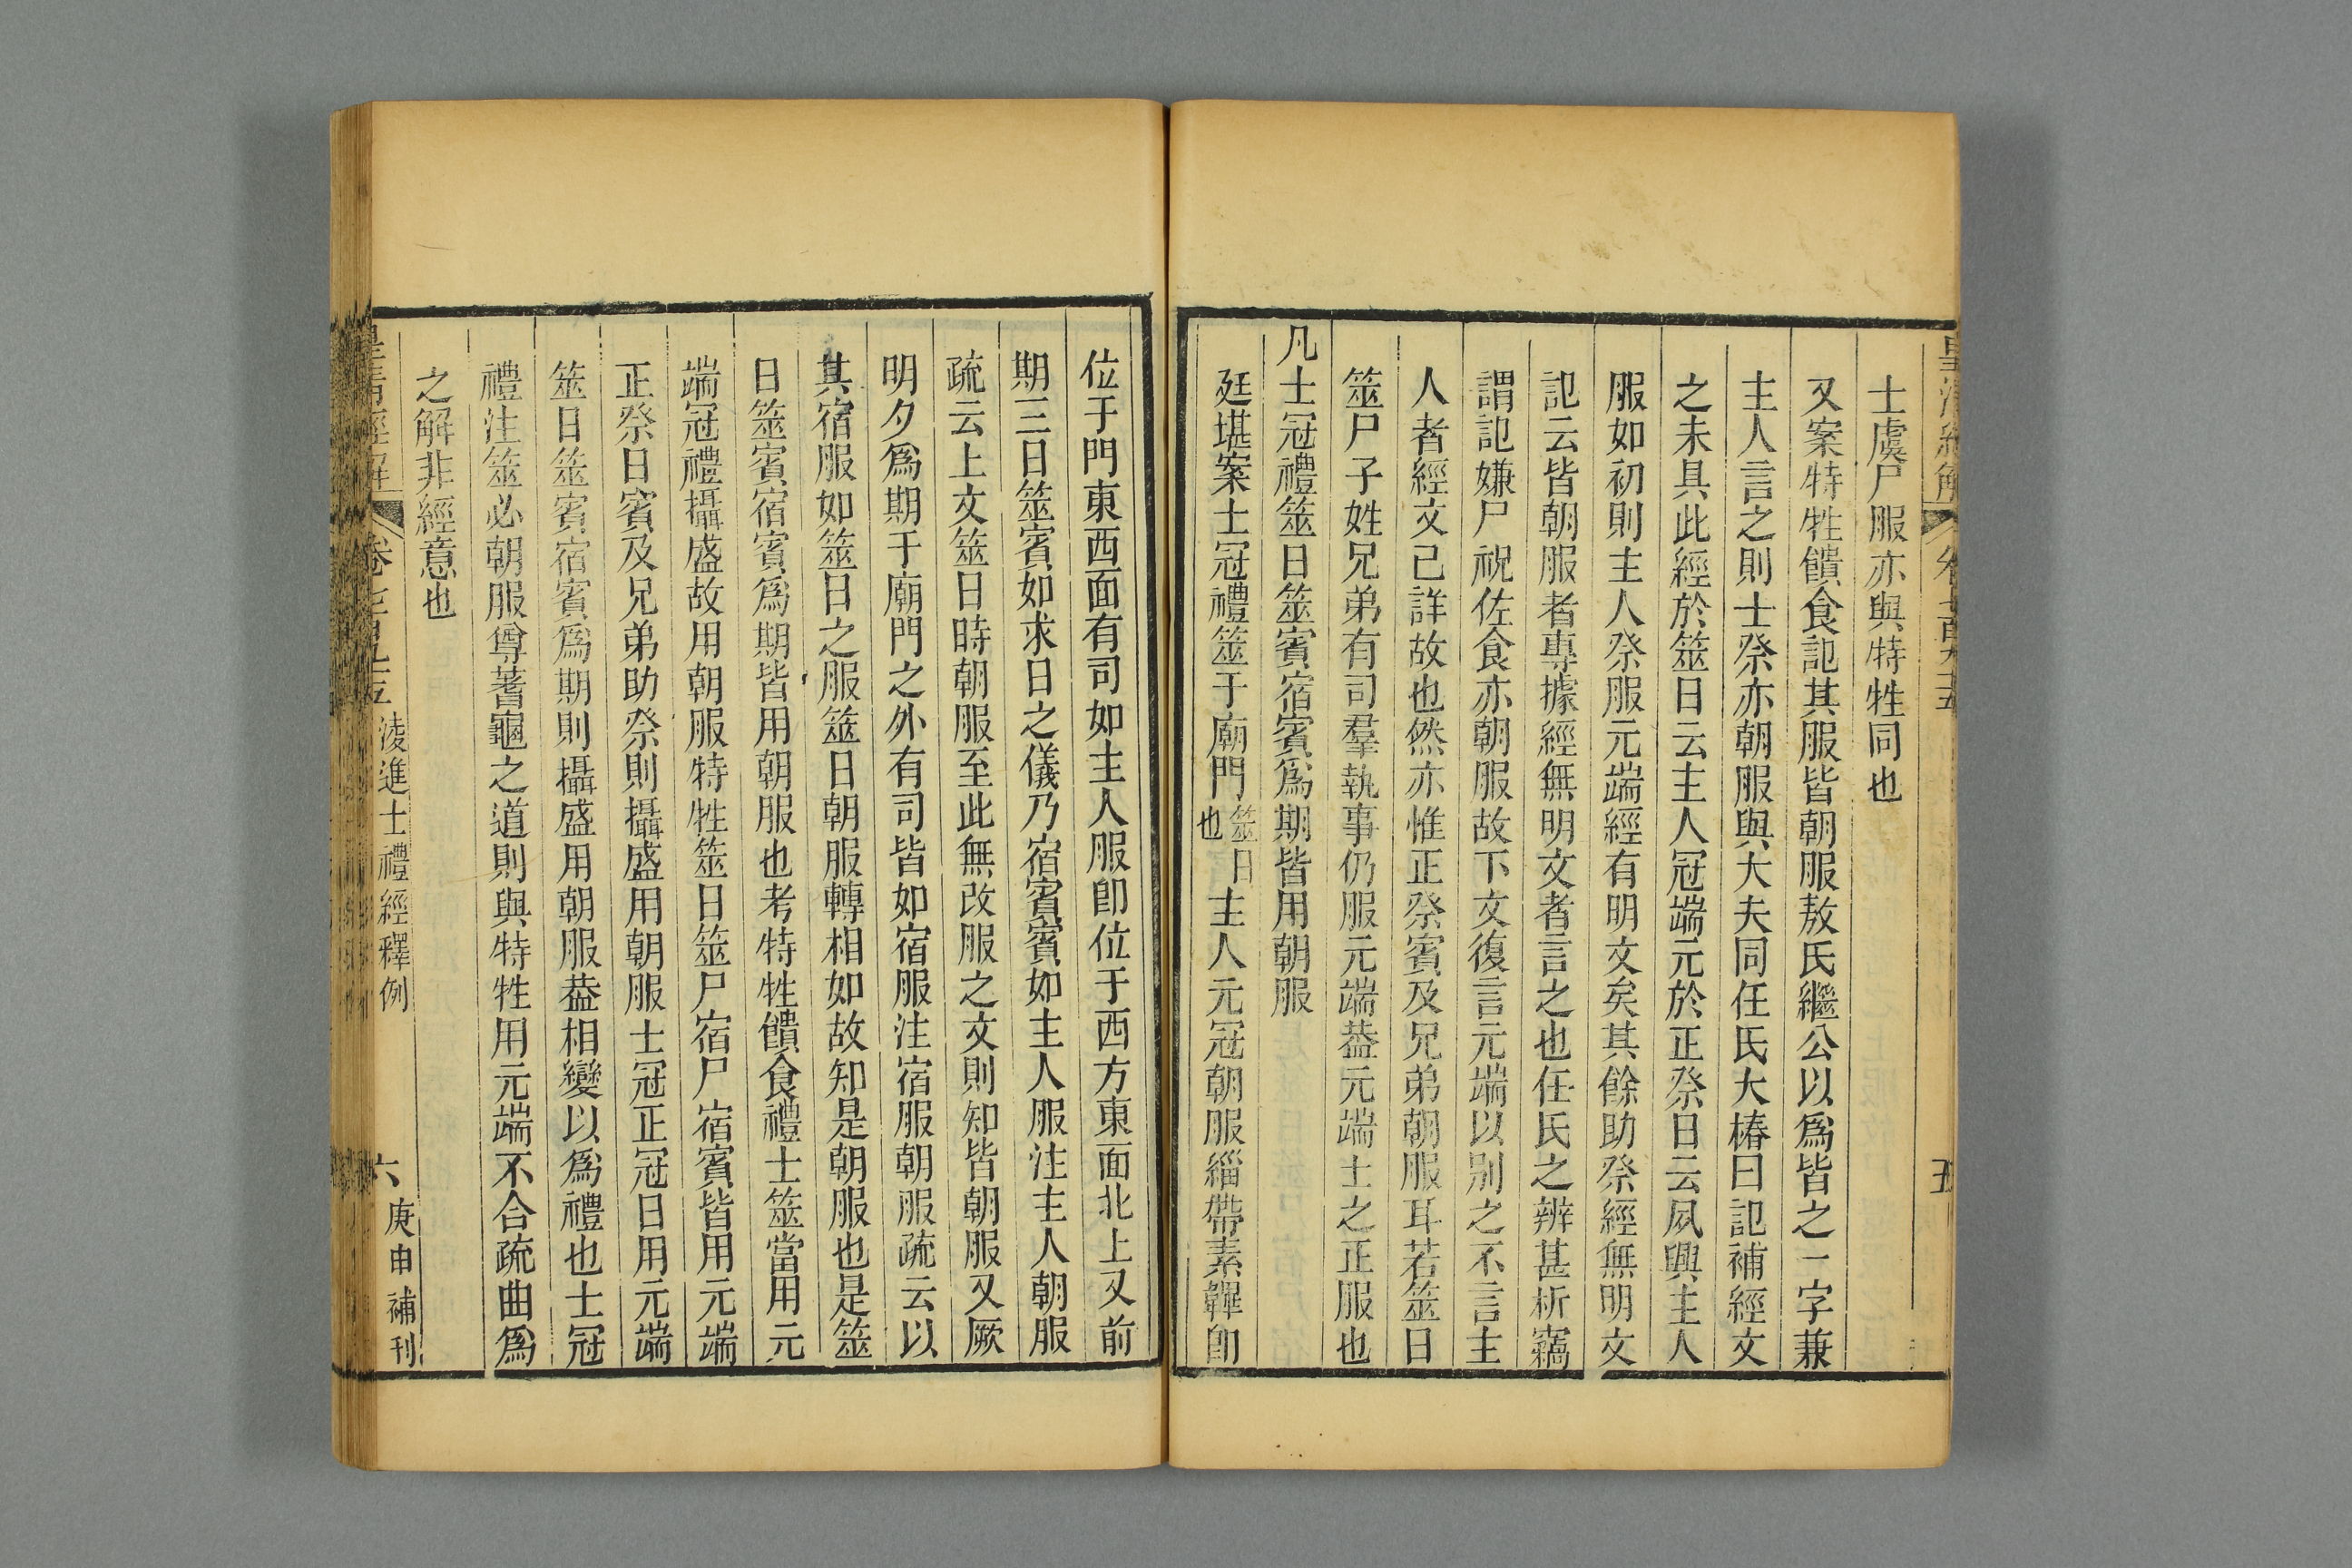 士虞尸服亦與特牲同也
又案特牲饋食記其服皆朝服敖氏繼公以爲皆之一字兼
主人言之則士祭亦朝服與大夫同任氏大椿曰記補經文
之未具此經於筮日云主人冠端元於正祭日云夙興主人
服如初則主人祭服元端經有明文矣其餘助祭經無明文
記云皆朝服者專據經無明文者言之也任氏之辨甚析竊
謂記嫌尸祝佐食亦朝服故下文復言元端以別之不言主
人者經文已詳故也然亦惟正祭賓及兄弟朝服耳若筮日
筮尸子姓兄弟有司羣執事仍服元端葢元端士之正服也
凡士冠禮筮日筮賓宿賓爲期皆用朝服
廷堪案士冠禮筮于廟門筮日也主人元冠朝服緇帶素韠卽
位于門東西面有司如主人服卽位于西方東面北上又前
期三日筮賓如求日之儀乃宿賓賓如主人服注主人朝服
疏云上文筮日時朝服至此無改服之文則知皆朝服又厥
明夕爲期于廟門之外有司皆如宿服注宿服朝服疏云以
其宿服如筮日之服筮日朝服轉相如故知是朝服也是筮
日筮賓宿賓爲期皆用朝服也考特牲饋食禮士筮當用元
端冠禮攝盛故用朝服特牲筮日筮尸宿尸宿賓皆用元端
正祭日賓及兄弟助祭則攝盛用朝服士冠正冠日用元端
筮日筮賓宿賓爲期則攝盛用朝服葢相變以爲禮也士冠
禮注筮必朝服尊蓍龜之道則與特牲用元端不合疏曲爲
之解非經意也
皇清經解 卷 凌進士禮經釋例 六 庚申補刊